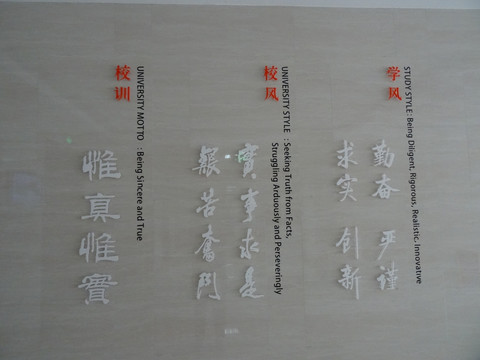 校训
UNIVERSITY MOTTO : Being Sincere and True
惟真惟實
校风
UNIVERSITY STYLE : Seeking Truth from Facts,
Struggling Arduously and Perseveringly
實事求是
艱苦奮鬥
学风
STUDY STYLE: Being Diligent, Rigorous, Realistic, Innovative
勤奋 严谨
求实 创新